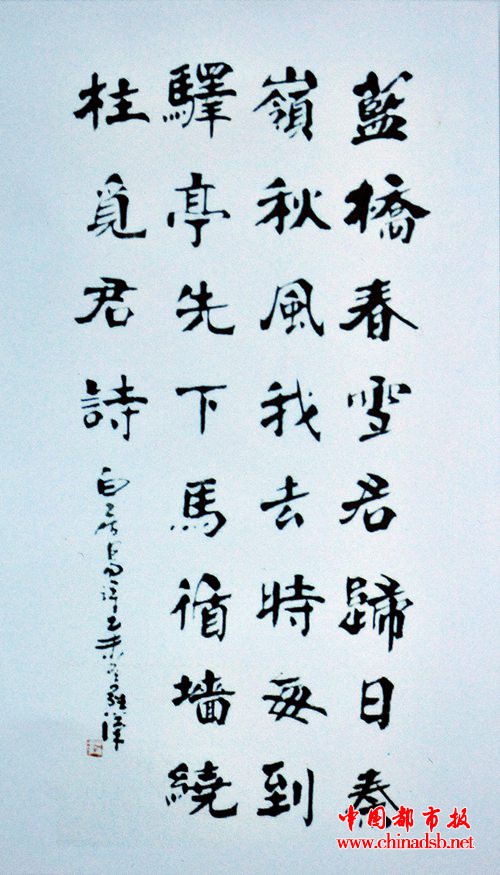 藍橋春雪君歸日秦
嶺秋風我去時每到
驛亭先下馬循墙繞
柱覓君詩
白居易詩乙未
中国都市报
www.chinadsb.net